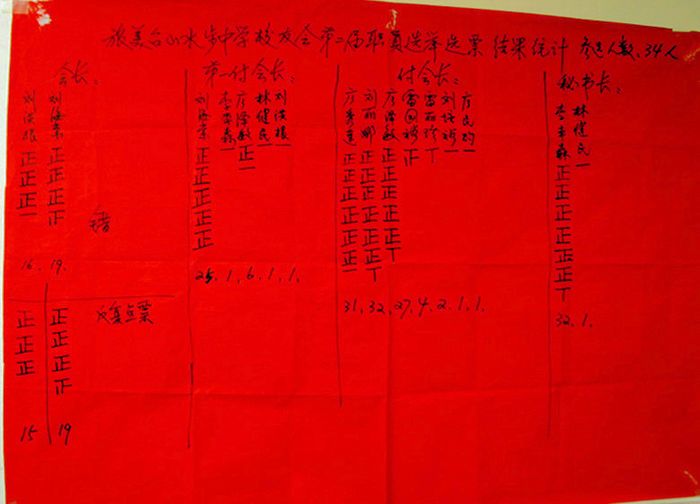 旅美台山水步中学校友会第二届职员选举选票结果统计 参选人数:34人
会长:
刘海棠 正正正正
19.
刘洪根 正正正一
16.
反复点票
正正正正
19
正正正
15
第一付会长:
刘海棠 正正正正正
李幸森 一
方泽敏 正一
林健民 一
刘洪根 一
25. 1. 6. 1. 1.
付会长:
正正正正正正一
刘丽娜 正正正正正正丅
方泽敏 正正正正正丅
雷国祯 正
丅
一
方民均 一
31. 32. 27. 4. 2. 1. 1.
秘书长:
李幸森 正正正正正正丅
林健民 一
32. 1.